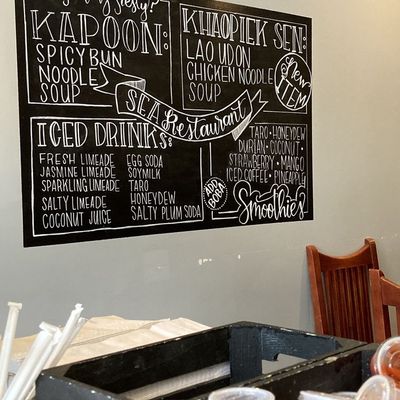 KAPOON:
SPICY BUN
NOODLE
SOUP
KHAOPIEK SEN:
LAO UDON
CHICKEN NOODLE
SOUP
New
ITEM
SEA Restaurant
ICED DRINKS:
FRESH LIMEADE
JASMINE LIMEADE
SPARKLING LIMEADE
SALTY LIMEADE
COCONUT JUICE
EGG SODA
SOYMILK
TARO
HONEYDEW
SALTY PLUM SODA
TARO • HONEYDEW
DURIAN • COCONUT •
STRAWBERRY • MANGO
ICED COFFEE • PINEAPPLE
ADD
BOBA
Smoothies